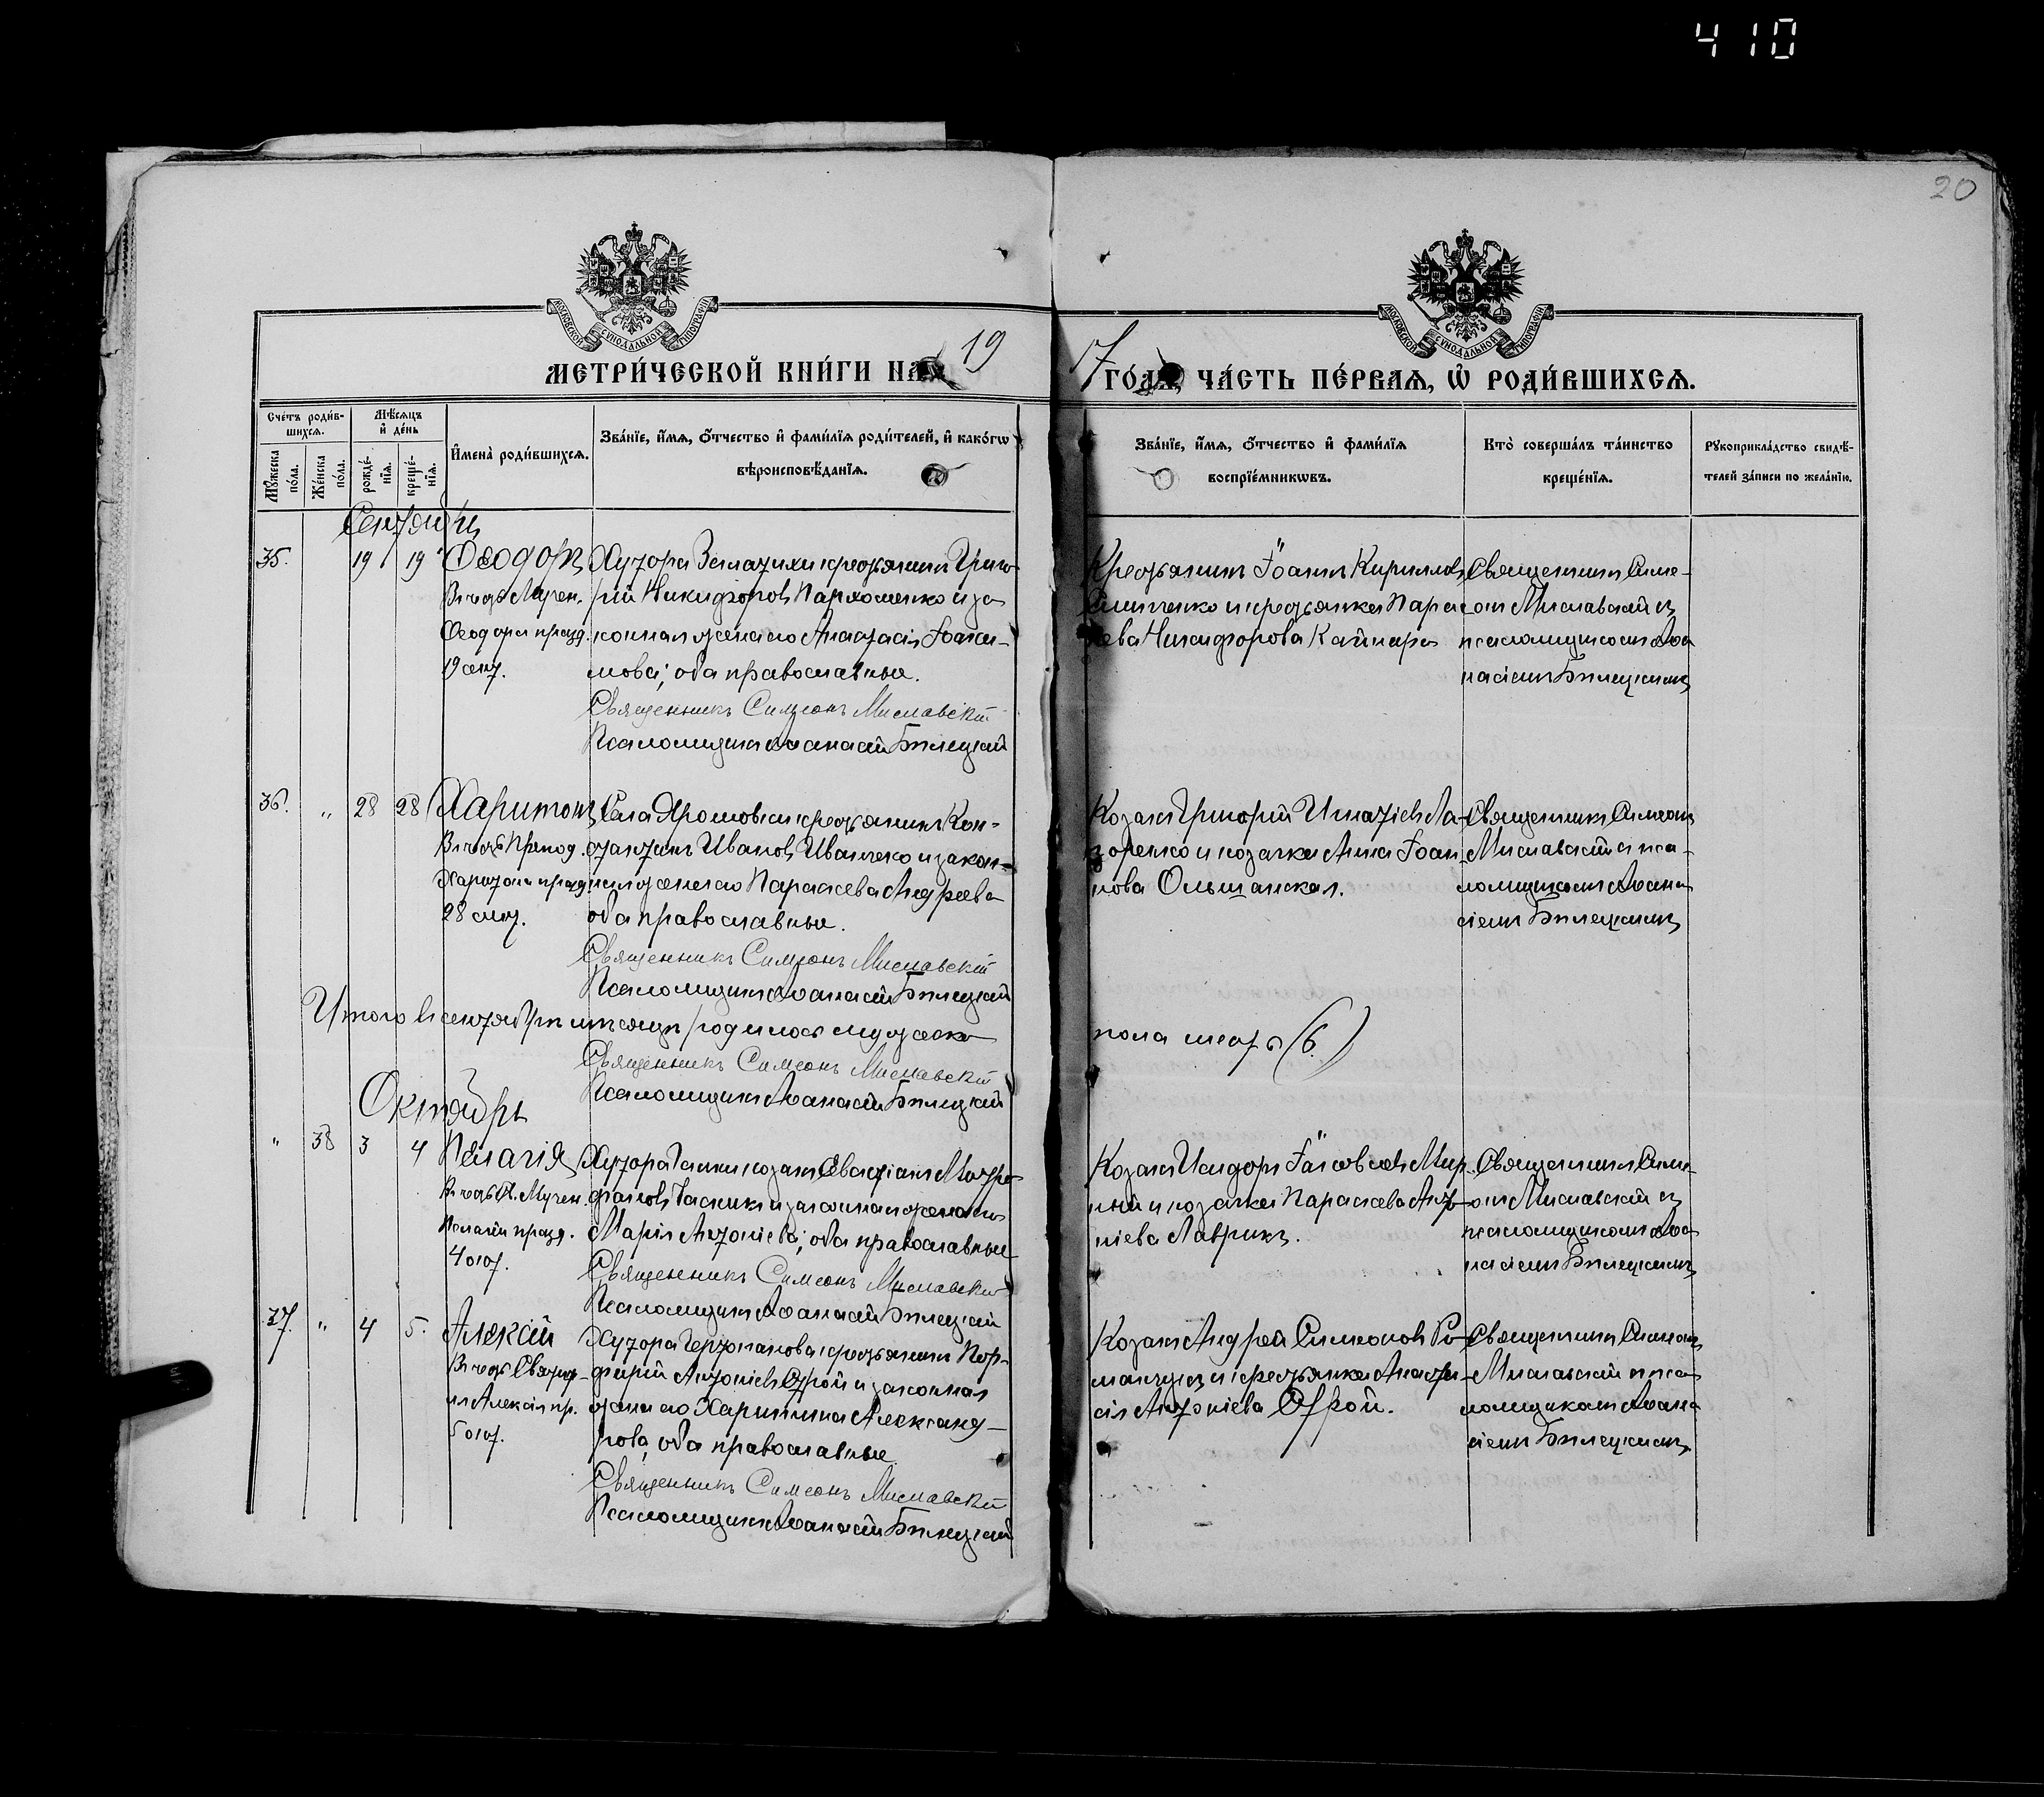 410
20
МОСКОВСКОЙ СУНОДАЛЬНОЙ ТИПОГРАФІИ
МОСКОВСКОЙ СУНОДАЛЬНОЙ ТИПОГРАФІИ
МЕТРИ́ЧЕСКОЙ КНИ́ГИ НА 19
17 ГО́ДА, ЧА́СТЬ ПЕ́РВАЯ, Ѡ҆ РОДИ́ВШИХСЯ.
Сче́тъ роди́в-
шихся.
Мѣ́сяцъ
и҆ де́нь
Мꙋ́жеска
по́ла.
Же́нска
по́ла.
рожде́-
нїя.
креще́-
нїя.
И҆мена̀ роди́вшихся.
Зва́нїе, и҆́мя, ѻ҆́тчество и҆ фами́лїя роди́телей, и҆ како́гѡ
вѣроисповѣ́данїя.
Зва́нїе, и҆́мя, ѻ҆́тчество и҆ фами́лїя
воспрїе́мникѡвъ.
Кто̀ соверша́лъ та́инство
креще́нїя.
Рꙋкоприкла́дство свидѣ́-
телей за́писи по жела́нїю.
Сентябрь
35. 19 19 Ѳеодоръ
Въ честь Мучен.
Ѳеодора празд.
19 сент.
Хутора крестьянинъ Григо-
рій Никифоровъ Пархоменко и за-
конная жена его Анастасія Іоаки-
мова; оба православные.
Священникъ Симеонъ Миславскій
Псаломщикъ Аѳанасій Бѣлецкій
Крестьянинъ Іоаннъ Кирилловъ
и крестьянка Параске-
ева Никифорова
Священникъ Симе-
онъ Миславскій съ
псаломщикомъ Аѳа
насіемъ Бѣлецкимъ
36. " 28 28 Харитонъ
Въ честь Препод.
Харитона празд.
28 сент.
Села Яромовки крестьянинъ Кон-
стантинъ Ивановъ Иванченко и закон-
ная жена его Параскева Андреева
оба православные.
Священникъ Симеонъ Миславскій
Псаломщикъ Аѳанасій Бѣлецкій
Козакъ Григорій Игнатіевъ Ла-
зоренко и козачка Анна Іоан-
нова Ольшанская.
Священникъ Симеонъ
Миславскій и пса-
ломщикомъ Аѳана
сіемъ Бѣлецкимъ
Итого въ сентябрѣ мѣсяцѣ родилось мужеска
пола шесть (6.)
Священникъ Симеонъ Миславскій
Псаломщикъ Аѳанасій Бѣлецкій
Октябрь
" 38 3 4 Пелагія
Въ честь П. Мучен.
Пелагіи празд.
4 окт.
Хутора козакъ Евстафій Митро-
фановъ и законная жена его
Марія Антоніева; оба православные
Священникъ Симеонъ Миславскій
Псаломщикъ Аѳанасій Бѣлецкій
Козакъ Исидоръ Іаковлевъ Мир-
ный и козачка Параскева Анто-
ніева Лаврикъ.
Священникъ Симе-
онъ Миславскій съ
псаломщикомъ Аѳа
насіемъ Бѣлецкимъ
37. " 4 5. Алексій
Въ честь Святит-
ля Алексія пр.
5 окт.
Хутора крестьянинъ Пор-
фирій Антоніевъ и законная
жена его Харитина Александ-
рова, оба православные
Священникъ Симеонъ Миславскій
Псаломщикъ Аѳанасій Бѣлецкій
Козакъ Андрей Симеоновъ Ро-
манчукъ и крестьянка Анаста-
сія Антоніева
Священникъ Симеонъ
Миславскій и пса
ломщикомъ Аѳана
сіемъ Бѣлецкимъ